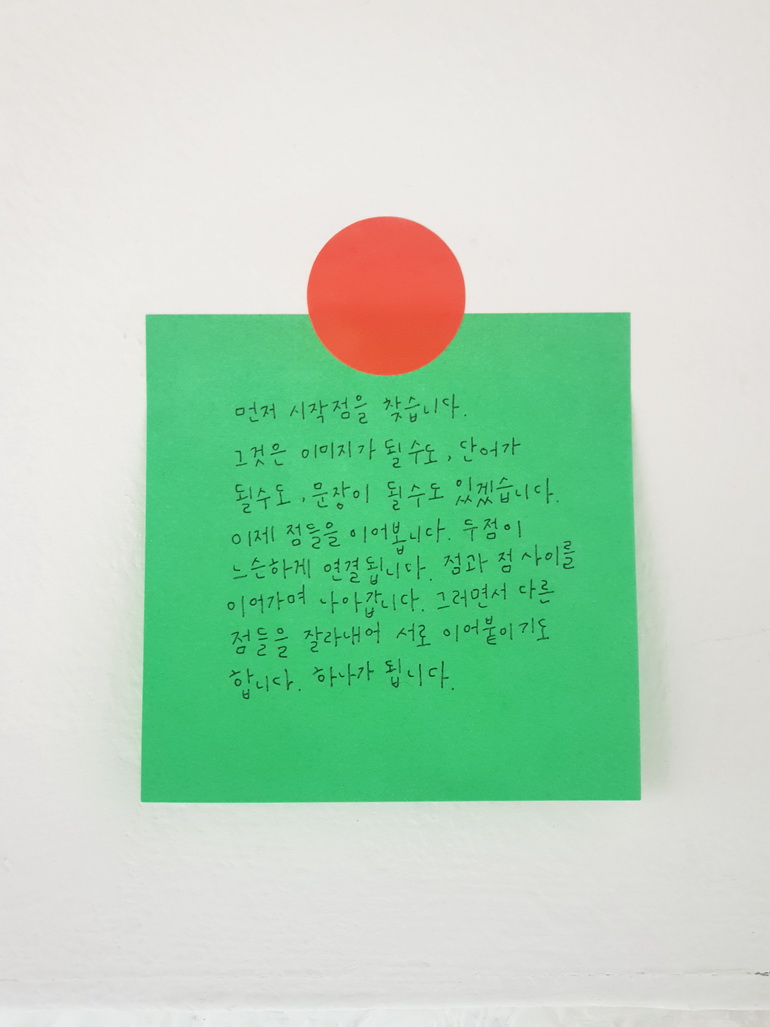 먼저 시작점을 찾습니다.
그것은 이미지가 될수도, 단어가
될수도, 문장이 될수도 있겠습니다.
이제 점들을 이어봅니다. 두점이
느슨하게 연결됩니다. 점과 점 사이를
이어가며 나아갑니다. 그러면서 다른
점들을 잘라내어 서로 이어붙이기도
합니다. 하나가 됩니다.